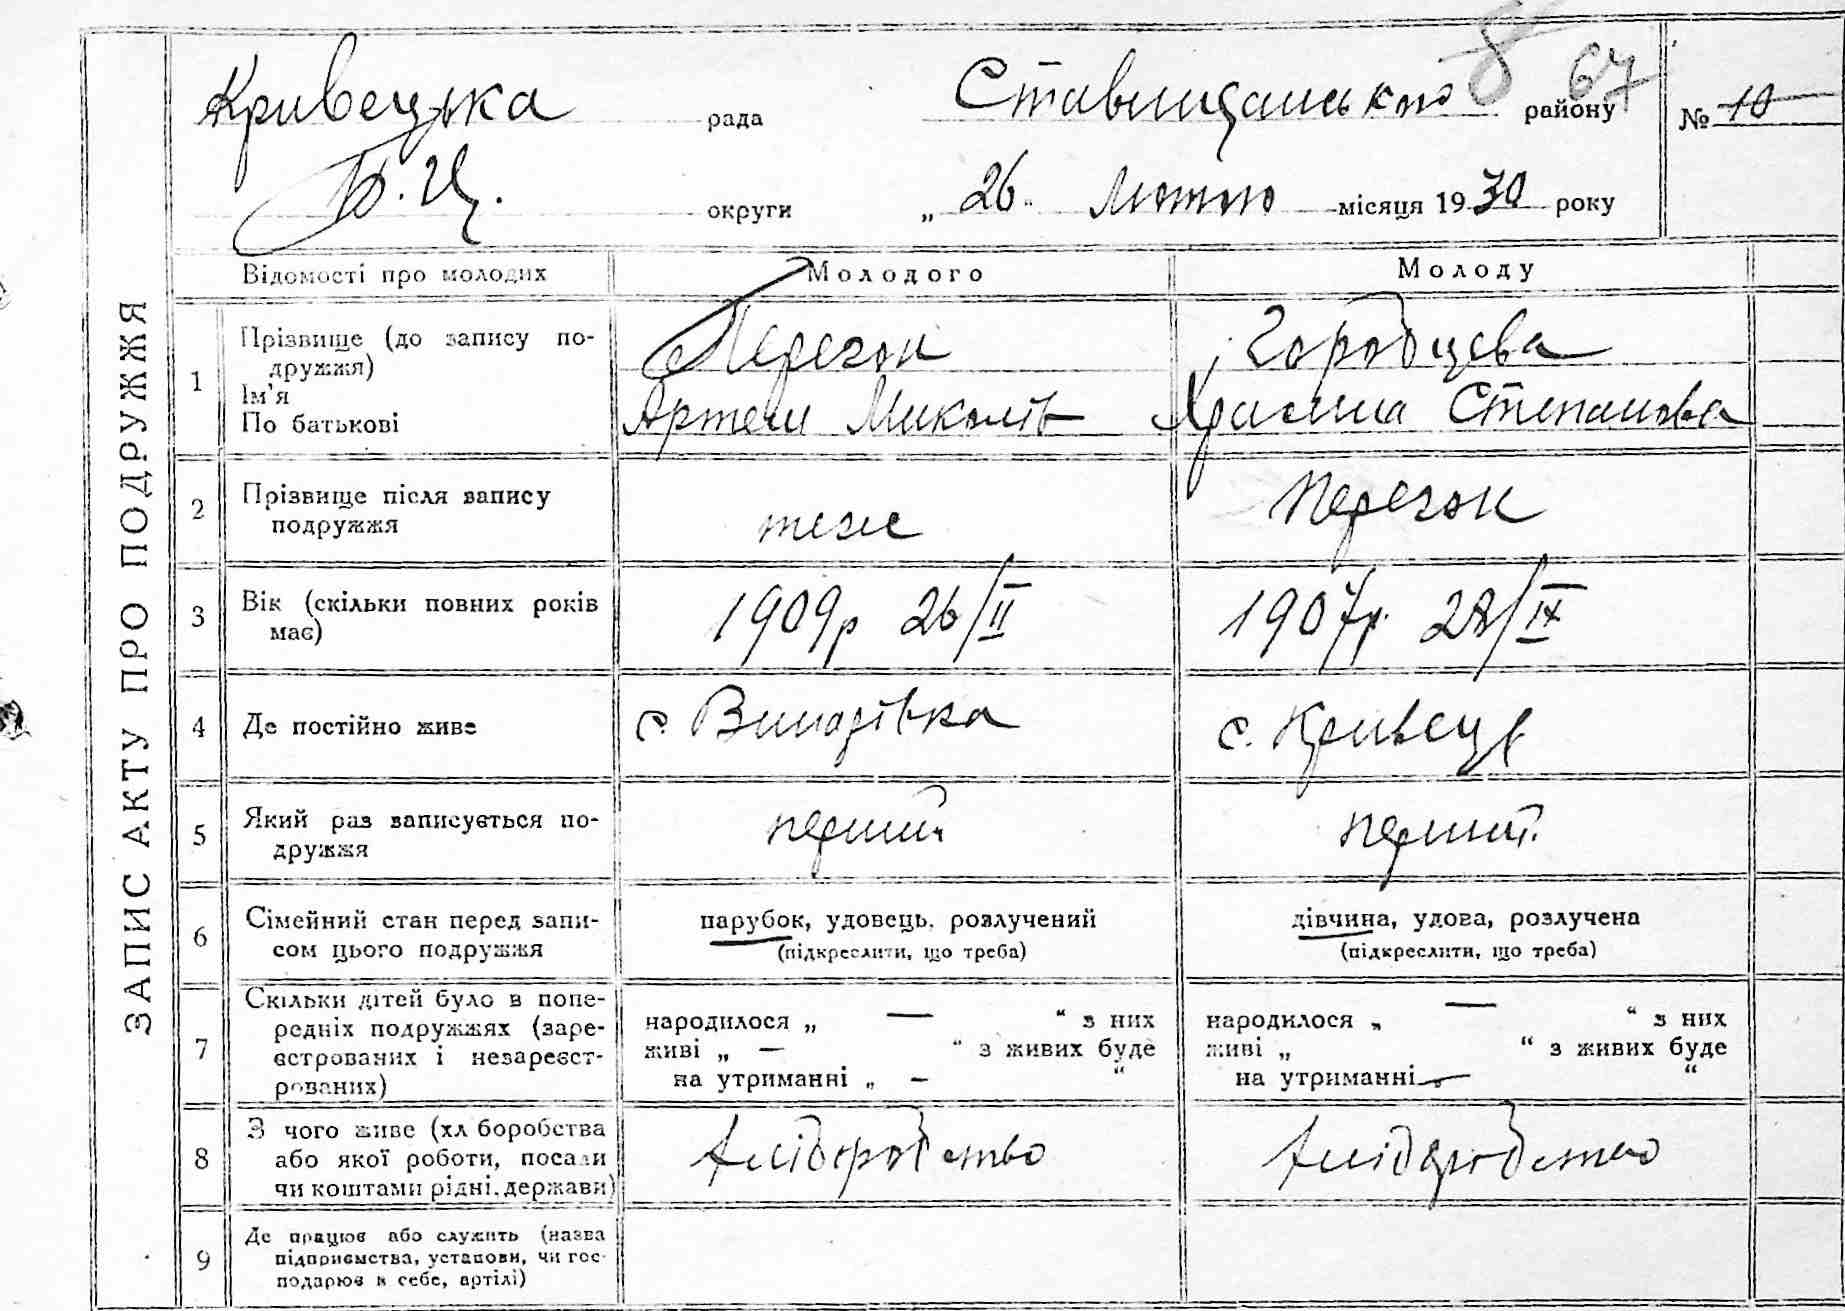 8 67
Кривецька рада Ставищанського району № 10
Б. Ц. округи „ 26 " лютого місяця 1930 року
ЗАПИС АКТУ ПРО ПОДРУЖЖЯ
Відомості про молодих Молодого Молоду
1 Прізвище (до запису подружжя) Перегон Городцева
Ім'я
По батькові Артем Миколів Хрисина Степанова
2 Прізвище після запису подружжя теж Перегон
3 Вік (скільки повних років має) 1909р 26/II 1907р. 28/IX
4 Де постійно живе с. Винарівка с. Кривець
5 Який раз записується подружжя перший перший
6 Сімейний стан перед записом цього подружжя парубок, удовець, розлучений дівчина, удова, розлучена
(підкреслити, що треба) (підкреслити, що треба)
7 Скільки дітей було в попередніх подружжях (зареєстрованих і незареєстрованих)
народилося „ — " з них народилося „ — " з них
живі „ — " з живих буде живі „ " з живих буде
на утриманні „ — " на утриманні „ — "
8 З чого живе (хліборобства або якої роботи, посади чи коштами рідні, держави) хліборобство хліборобство
9 Де працює або служить (назва підприємства, установи, чи господарює в себе, артілі)